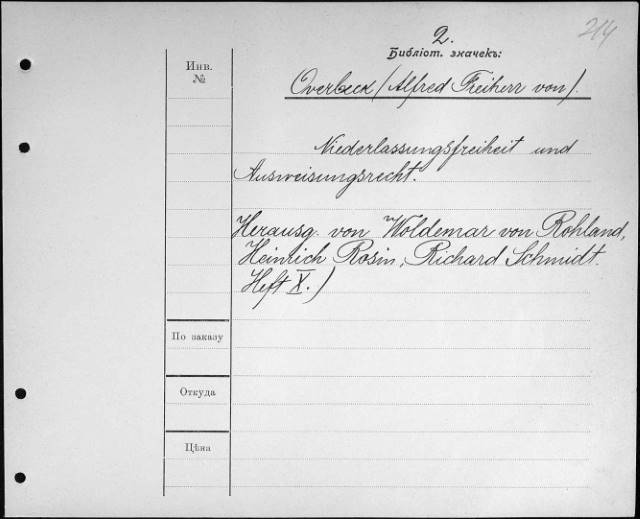 214
2.
Библіот. значекъ:
Инв.
№
Overbeck (Alfred Freiherr von).
Niederlassungsfreiheit und
Ausweisungsrecht.
Herausg. von Woldemar von Rohland,
Heinrich Rosin, Richard Schmidt.
Heft X.)
По заказу
Откуда
Цѣна